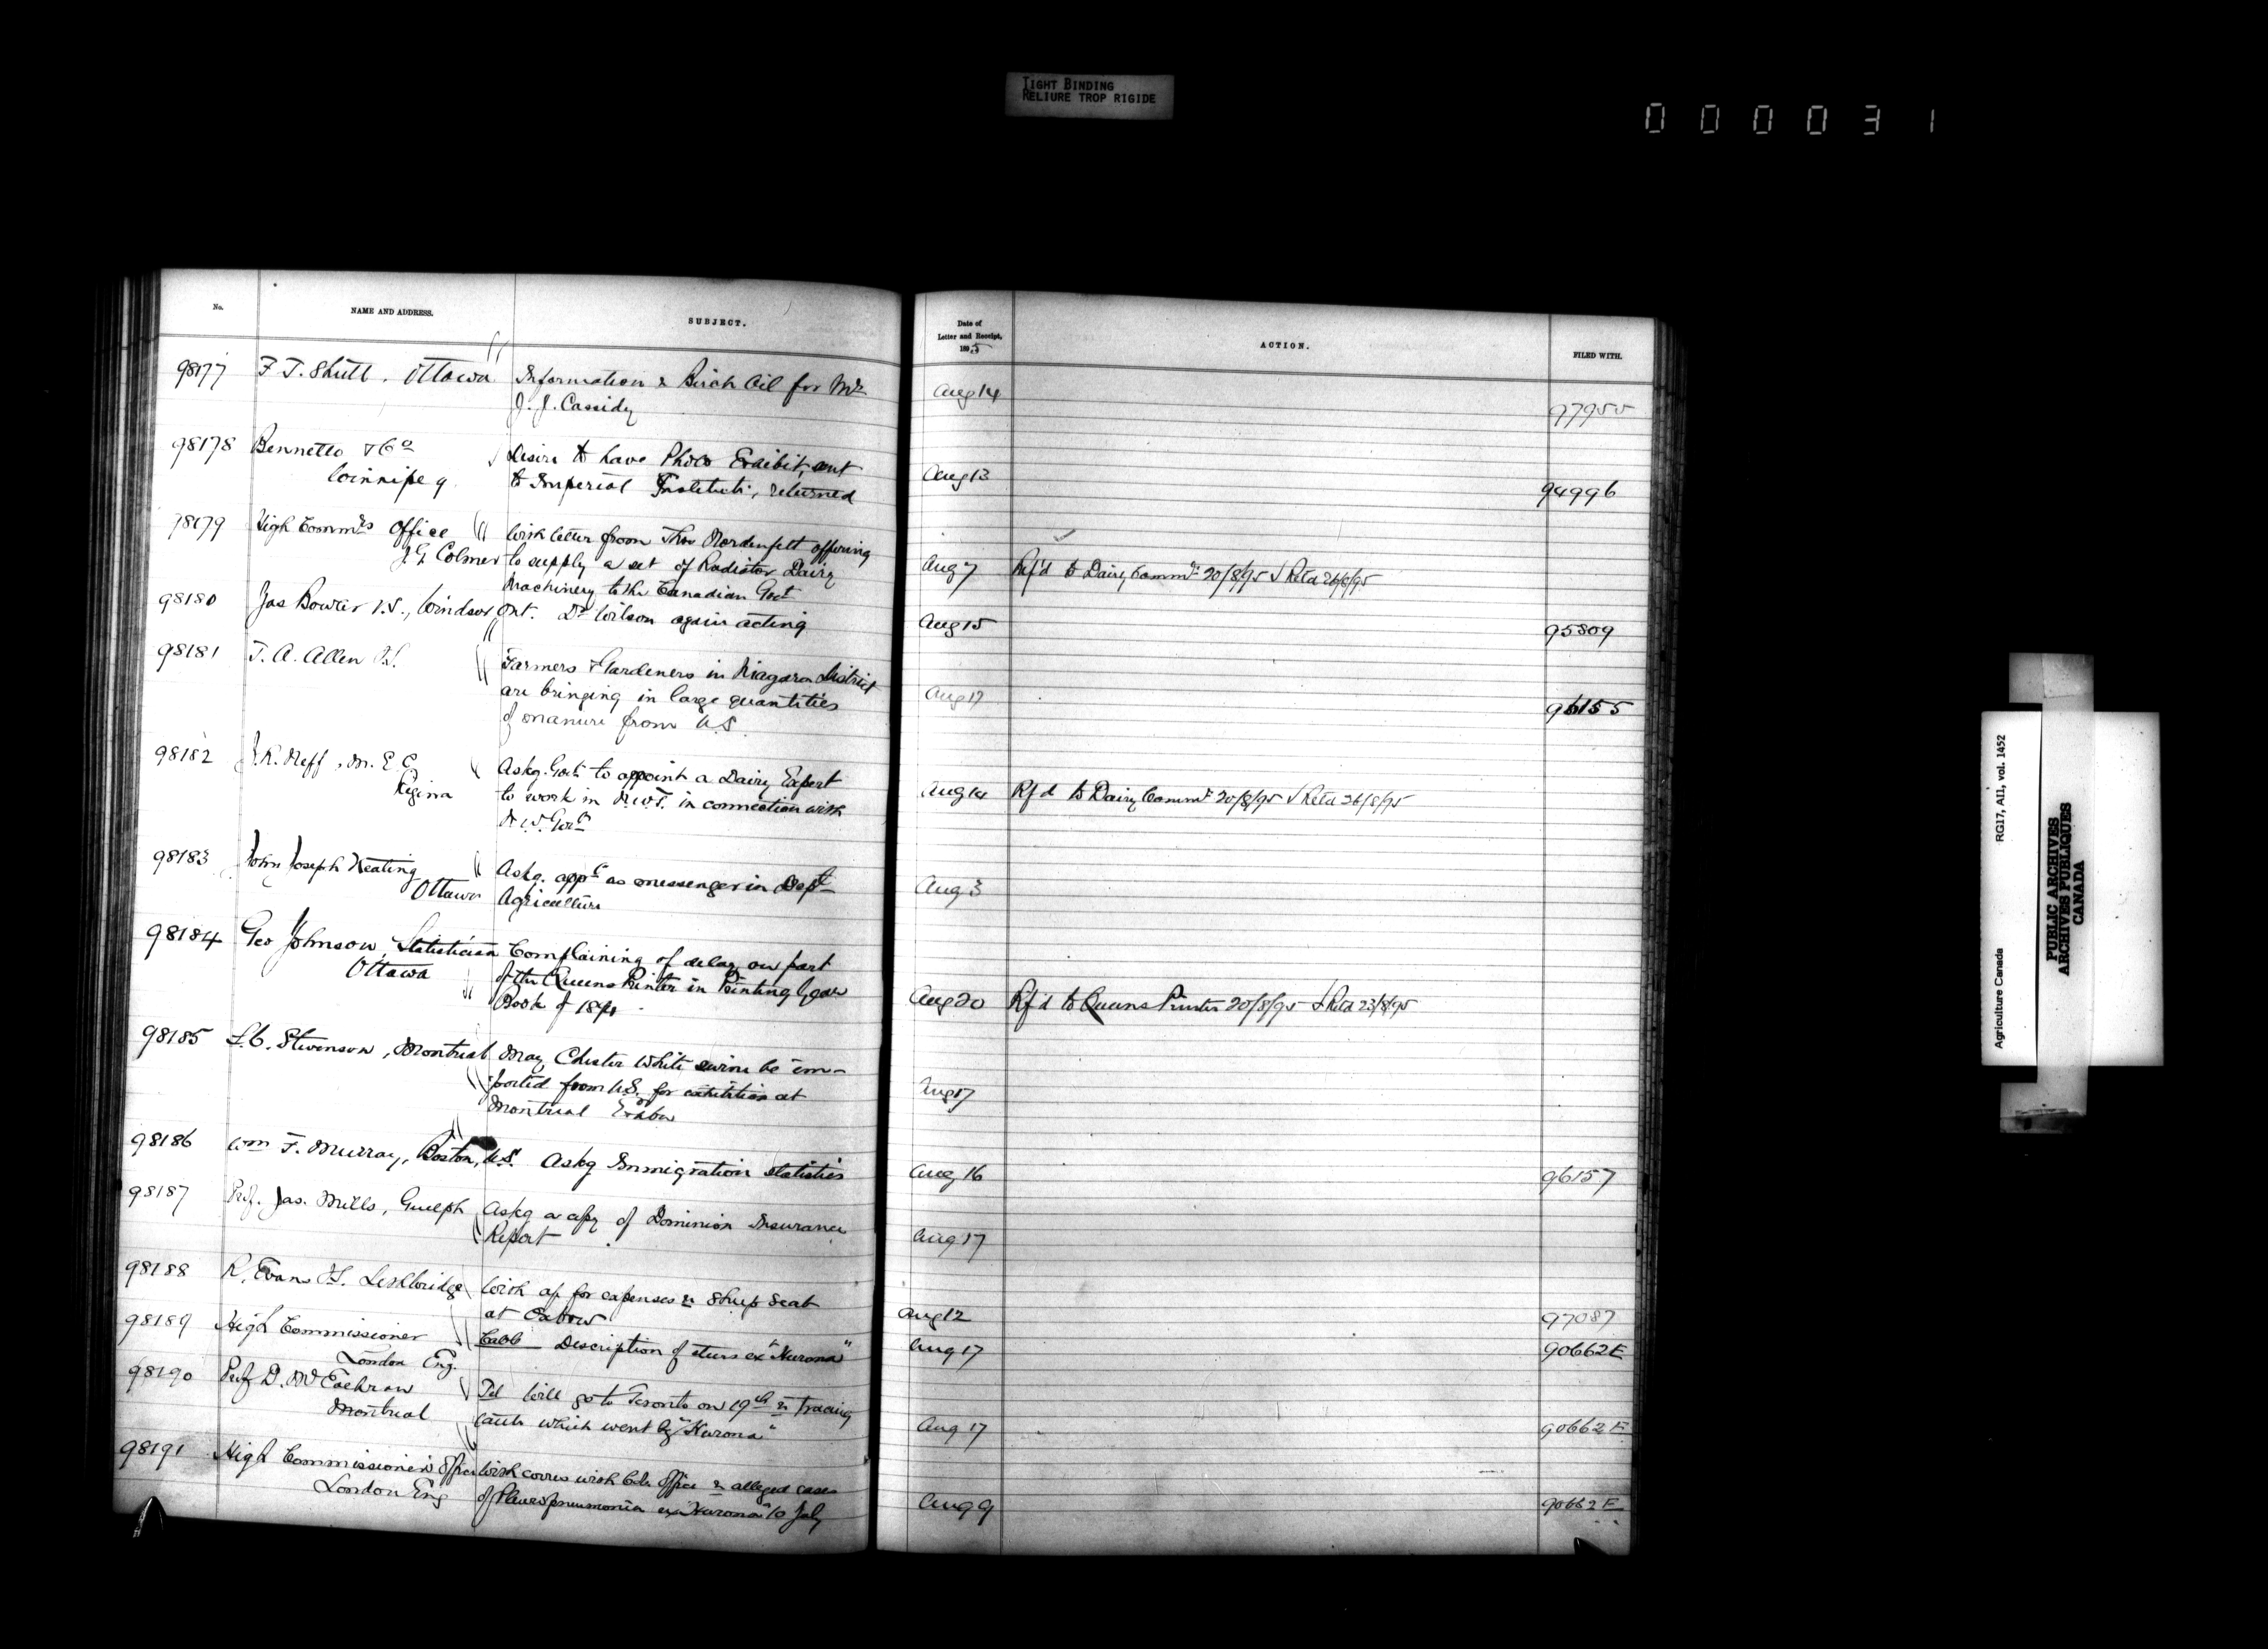 TIGHT BINDING
RELIURE TROP RIGIDE
000031
No.
NAME AND ADDRESS.
SUBJECT.
Date of
Letter and Receipt,
1895
ACTION.
FILED WITH.
98177 F. T. Shutt, Ottawa Information re Birch Oil for Mr Aug 14
J. J. Cassidy 97955
98178 Bennetto & Co Desire to have Photo Exhibit, sent Aug 13
Winnipeg to Imperial Institute, returned 94996
98179 High Commrs Office With letter from Thos Nordenfelt offering
J. G. Colmer to supply a set of Radiator Dairy Aug 7 Ref'd to Dairy Commr 20/8/95 Retd 26/8/95
Machinery to the Canadian Govt
98180 Jas Bowler V.S., Windsor, Ont. Dr Wilson again acting Aug 15 95809
98181 T. A. Allen Farmers & Gardeners in Niagara District
are bringing in large quantities Aug 17
of manure from U.S. 96155
98182 J. R. Neff, M.E.C. Askg. Govt. to appoint a Dairy Expert
Regina to work in N.W.T. in connection with Aug 14 Rf'd to Dairy Commr 20/8/95 Retd 26/8/95
N.W. Govt
98183 John Joseph Keating Askg. appt as messenger in Dept
Ottawa Agriculture Aug 3
98184 Geo Johnson, Statistician Complaining of delay on part
Ottawa of the Queens Printer in Printing Year
Book of 1894 Aug 20 Rf'd to Queens Printer 20/8/95 Retd 23/8/95
98185 S. C. Stevenson, Montreal May Chester White swine be im-
ported from U.S. for exhibition at
Montreal Exhbn Aug 17
98186 Wm F. Murray, Boston, U.S. Askg Immigration statistics Aug 16 96157
98187 Prof. Jas. Mills, Guelph Askg a copy of Dominion Insurance
Report Aug 17
98188 R. Evans Lethbridge With a/c for expenses re Sheep Scab
at Oxbow Aug 12 97087
98189 High Commissioner Cable Description of steers ex "Hurona" Aug 17 90662E
London Eng.
98190 Prof D. McEachran Tel Will go to Toronto on 19th re tracing
Montreal cattle which went by "Hurona" Aug 17 90662E
98191 High Commissioner's Office With corres with Col. Office re alleged cases
London Eng of Pleuropneumonia ex "Hurona" 10 July Aug 9 90662E
Agriculture Canada RG17, AII, vol. 1452
PUBLIC ARCHIVES
ARCHIVES PUBLIQUES
CANADA